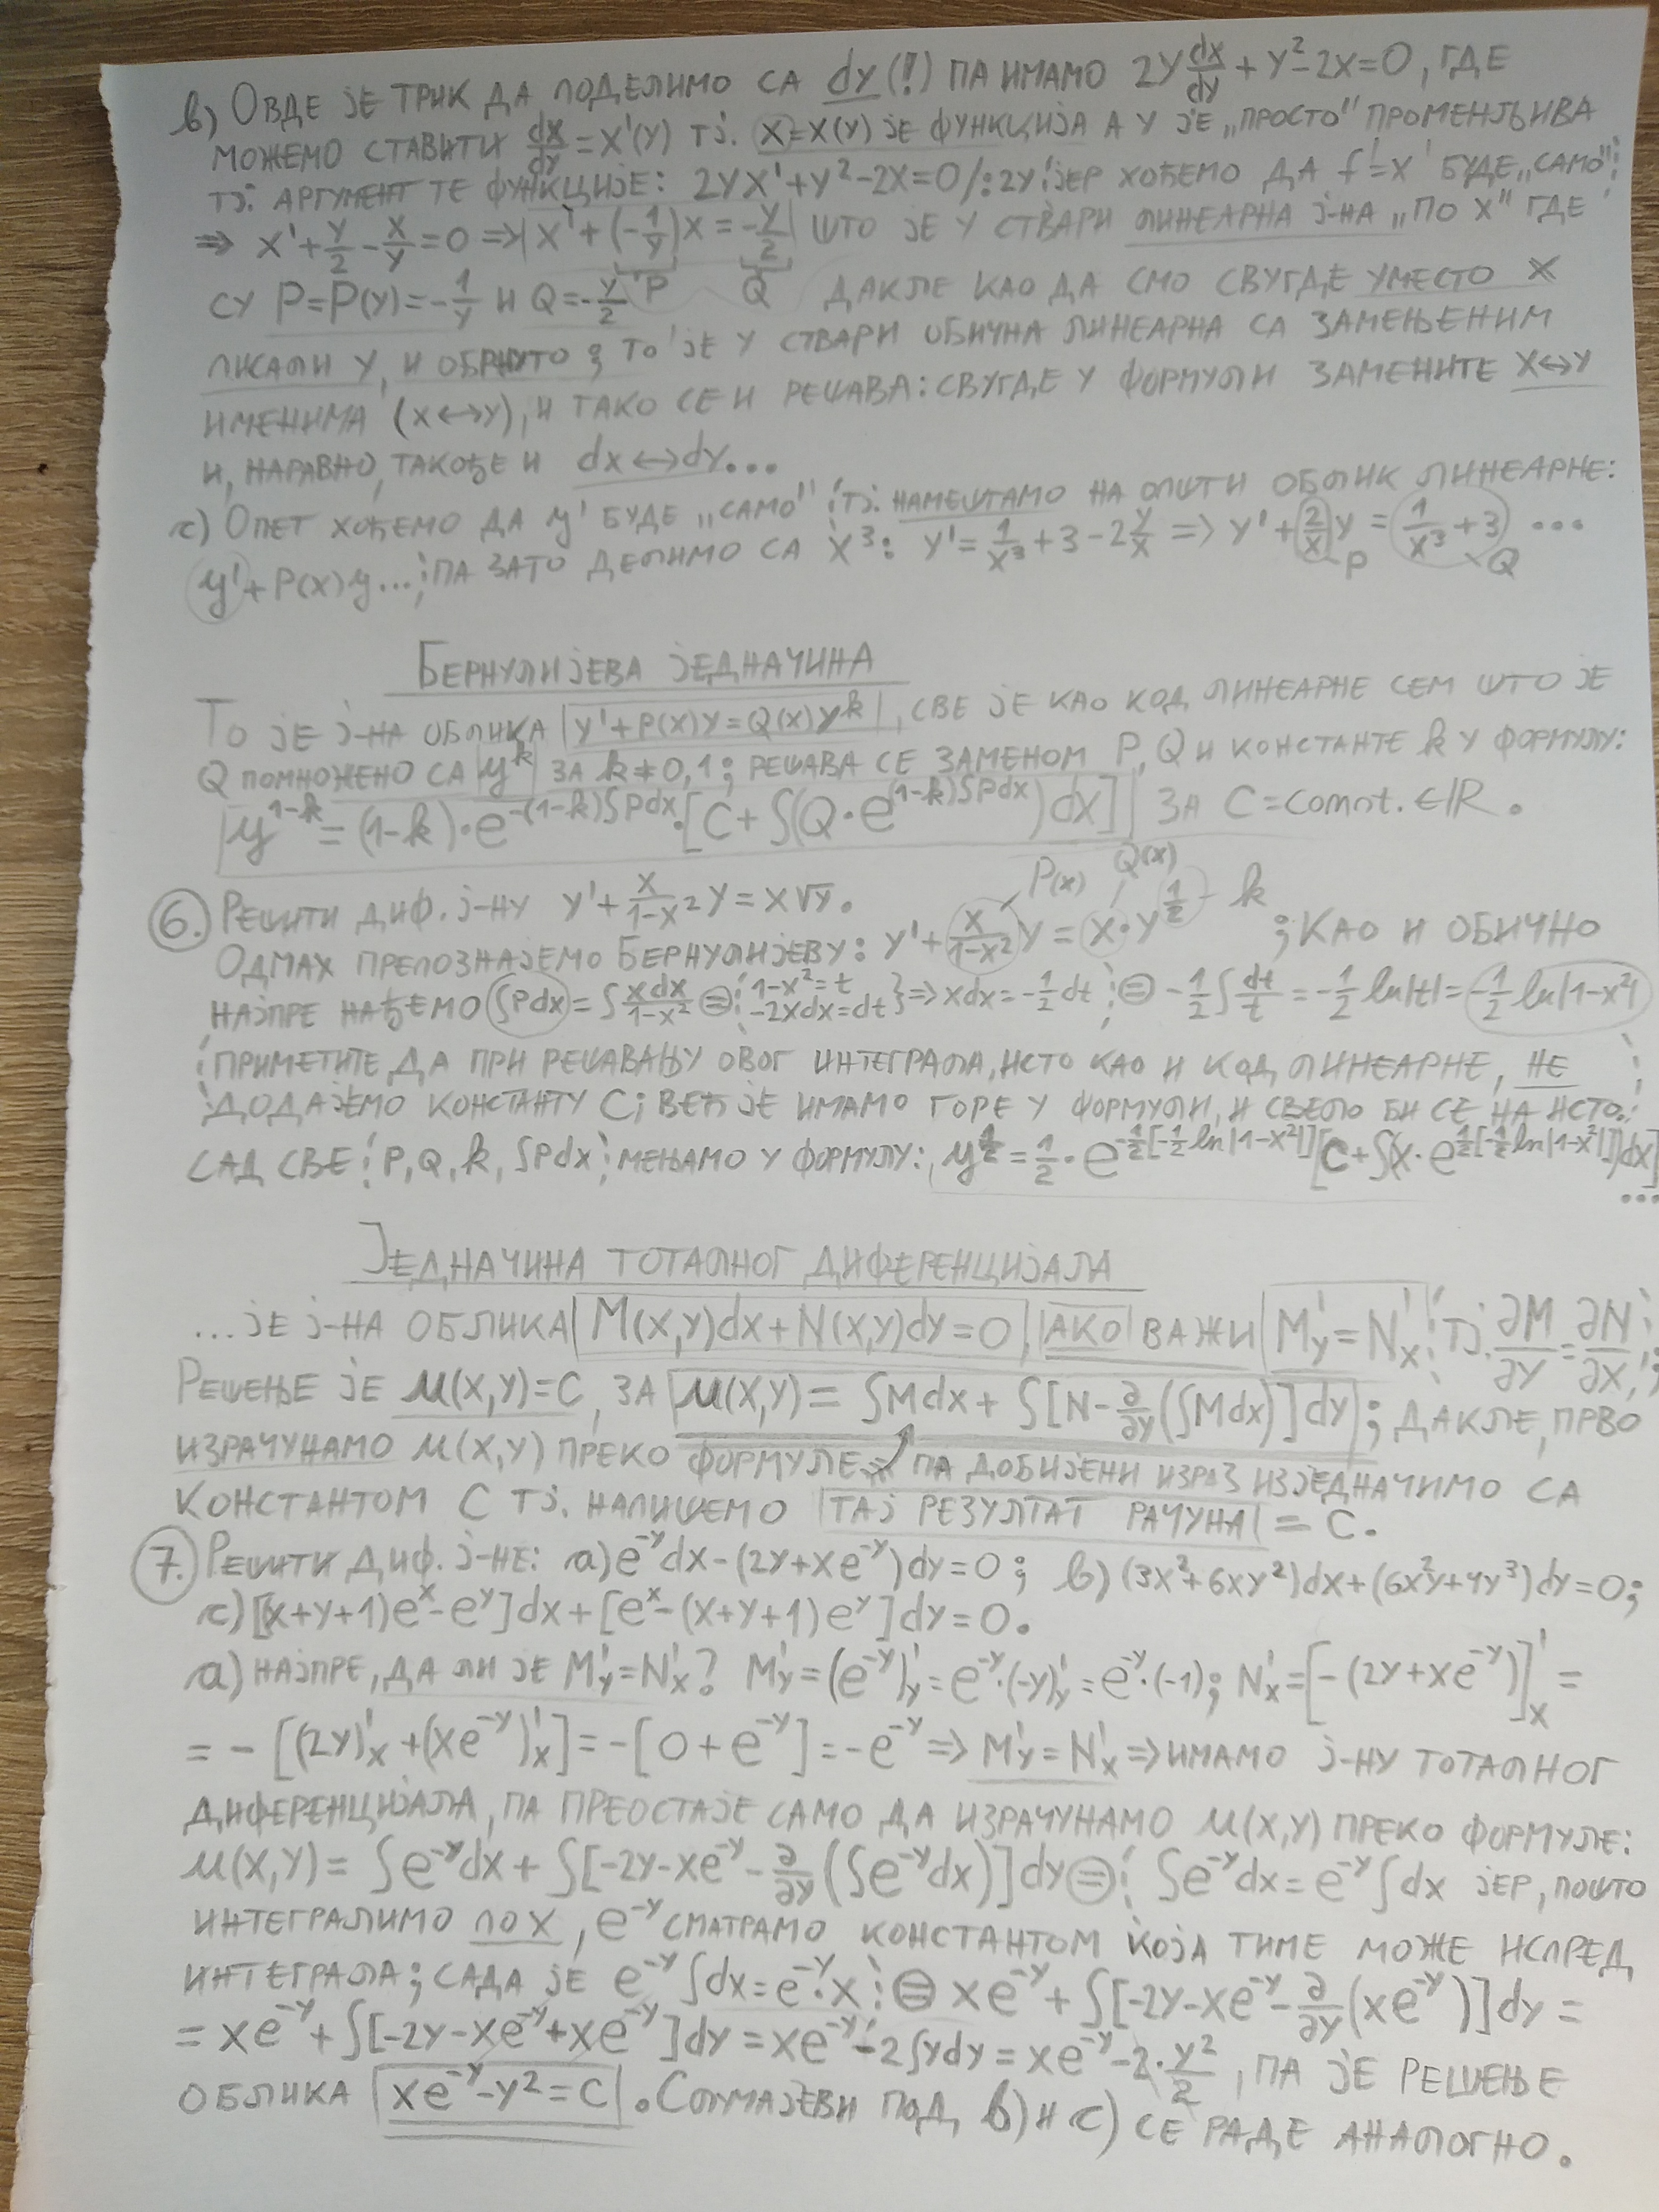 b) ОВДЕ ЈЕ ТРИК ДА ПОДЕЛИМО СА dy (!) ПА ИМАМО 2y dx/dy + y² - 2x = 0, ГДЕ
МОЖЕМО СТАВИТИ dx/dy = x'(y) ТЈ. x = x(y) ЈЕ ФУНКЦИЈА А y ЈЕ „ПРОСТО" ПРОМЕНЉИВА
ТЈ. АРГУМЕНТ ТЕ ФУНКЦИЈЕ: 2yx' + y² - 2x = 0 /:2y ¦ЈЕР ХОЋЕМО ДА f' = x' БУДЕ „САМО"¦
⇒ x' + y/2 - x/y = 0 ⇒ |x' + (-1/y)x = -y/2| ШТО ЈЕ У СТВАРИ ЛИНЕАРНА Ј-НА „ПО X" ГДЕ
P Q
СУ P = P(y) = -1/y И Q = -y/2 ДАКЛЕ КАО ДА СМО СВУГДЕ УМЕСТО X
ПИСАЛИ У, И ОБРНУТО; ТО ЈЕ У СТВАРИ ОБИЧНА ЛИНЕАРНА СА ЗАМЕЊЕНИМ
ИМЕНИМА (x↔y), И ТАКО СЕ И РЕШАВА: СВУГДЕ У ФОРМУЛИ ЗАМЕНИТЕ X↔Y
И, НАРАВНО, ТАКОЂЕ И dx↔dy...
c) ОПЕТ ХОЋЕМО ДА y' БУДЕ „САМО" ¦ТЈ. НАМЕШТАМО НА ОПШТИ ОБЛИК ЛИНЕАРНЕ:
y' + P(x)y...¦ ПА ЗАТО ДЕЛИМО СА x³: y' = 1/x³ + 3 - 2 y/x ⇒ y' + (2/x)y = (1/x³ + 3) ...
P Q
БЕРНУЛИЈЕВА ЈЕДНАЧИНА
ТО ЈЕ Ј-НА ОБЛИКА |y' + P(x)y = Q(x)y^k|, СВЕ ЈЕ КАО КОД ЛИНЕАРНЕ СЕМ ШТО ЈЕ
Q ПОМНОЖЕНО СА |y^k| ЗА k ≠ 0,1; РЕШАВА СЕ ЗАМЕНОМ P, Q И КОНСТАНТЕ k У ФОРМУЛУ:
|y^(1-k) = (1-k)·e^(-(1-k)∫Pdx)·[C + ∫(Q·e^((1-k)∫Pdx))dx]| ЗА C = const. ∈ ℝ.
P(x) Q(x)
6. РЕШИТИ ДИФ. Ј-НУ y' + x/(1-x²) y = x√y.
ОДМАХ ПРЕПОЗНАЈЕМО БЕРНУЛИЈЕВУ: y' + (x/(1-x²))y = x·y^(1/2) - k ; КАО И ОБИЧНО
НАЈПРЕ НАЂЕМО ∫Pdx = ∫ xdx/(1-x²) ⊜ ¦1-x² = t, -2xdx = dt} ⇒ xdx = -1/2 dt¦ ⊜ -1/2 ∫ dt/t = -1/2 ln|t| = -1/2 ln|1-x²|
¦ПРИМЕТИТЕ ДА ПРИ РЕШАВАЊУ ОВОГ ИНТЕГРАЛА, ИСТО КАО И КОД ЛИНЕАРНЕ, НЕ
ДОДАЈЕМО КОНСТАНТУ C; ВЕЋ ЈЕ ИМАМО ГОРЕ У ФОРМУЛИ, И СВЕЛО БИ СЕ НА ИСТО.¦
САД СВЕ ¦P, Q, k, ∫Pdx¦ МЕЊАМО У ФОРМУЛУ: y^(1/2) = 1/2·e^(-1/2[-1/2 ln|1-x²|])[C + ∫(x·e^(1/2[-1/2 ln|1-x²|]))dx]
...
ЈЕДНАЧИНА ТОТАЛНОГ ДИФЕРЕНЦИЈАЛА
...ЈЕ Ј-НА ОБЛИКА |M(x,y)dx + N(x,y)dy = 0|, |АКО| ВАЖИ |M'y = N'x| ¦ТЈ. ∂M/∂y = ∂N/∂x¦;
РЕШЕЊЕ ЈЕ u(x,y) = C, ЗА |u(x,y) = ∫Mdx + ∫[N - ∂/∂y(∫Mdx)]dy|; ДАКЛЕ, ПРВО
ИЗРАЧУНАМО u(x,y) ПРЕКО ФОРМУЛЕ ПА ДОБИЈЕНИ ИЗРАЗ ИЗЈЕДНАЧИМО СА
КОНСТАНТОМ C ТЈ. НАПИШЕМО |ТАЈ РЕЗУЛТАТ РАЧУНА| = C.
7. РЕШИТИ ДИФ. Ј-НЕ: a) e^(-y)dx - (2y + xe^(-y))dy = 0; b) (3x² + 6xy²)dx + (6x²y + 4y³)dy = 0;
c) [(x+y+1)e^x - e^y]dx + [e^x - (x+y+1)e^y]dy = 0.
a) НАЈПРЕ, ДА ЛИ ЈЕ M'y = N'x? M'y = (e^(-y))'y = e^(-y)·(-y)'y = e^(-y)·(-1); N'x = [-(2y + xe^(-y))]'x =
= -[(2y)'x + (xe^(-y))'x] = -[0 + e^(-y)] = -e^(-y) ⇒ M'y = N'x ⇒ ИМАМО Ј-НУ ТОТАЛНОГ
ДИФЕРЕНЦИЈАЛА, ПА ПРЕОСТАЈЕ САМО ДА ИЗРАЧУНАМО u(x,y) ПРЕКО ФОРМУЛЕ:
u(x,y) = ∫e^(-y)dx + ∫[-2y - xe^(-y) - ∂/∂y(∫e^(-y)dx)]dy ⊜ ¦∫e^(-y)dx = e^(-y)∫dx ЈЕР, ПОШТО
ИНТЕГРАЛИМО ПО X, e^(-y) СМАТРАМО КОНСТАНТОМ КОЈА ТИМЕ МОЖЕ ИСПРЕД
ИНТЕГРАЛА; САДА ЈЕ e^(-y)∫dx = e^(-y)·x¦ ⊜ xe^(-y) + ∫[-2y - xe^(-y) - ∂/∂y(xe^(-y))]dy =
= xe^(-y) + ∫[-2y - xe^(-y) + xe^(-y)]dy = xe^(-y) - 2∫ydy = xe^(-y) - 2·y²/2, ПА ЈЕ РЕШЕЊЕ
ОБЛИКА |xe^(-y) - y² = C|. СЛУЧАЈЕВИ ПОД b) И c) СЕ РАДЕ АНАЛОГНО.